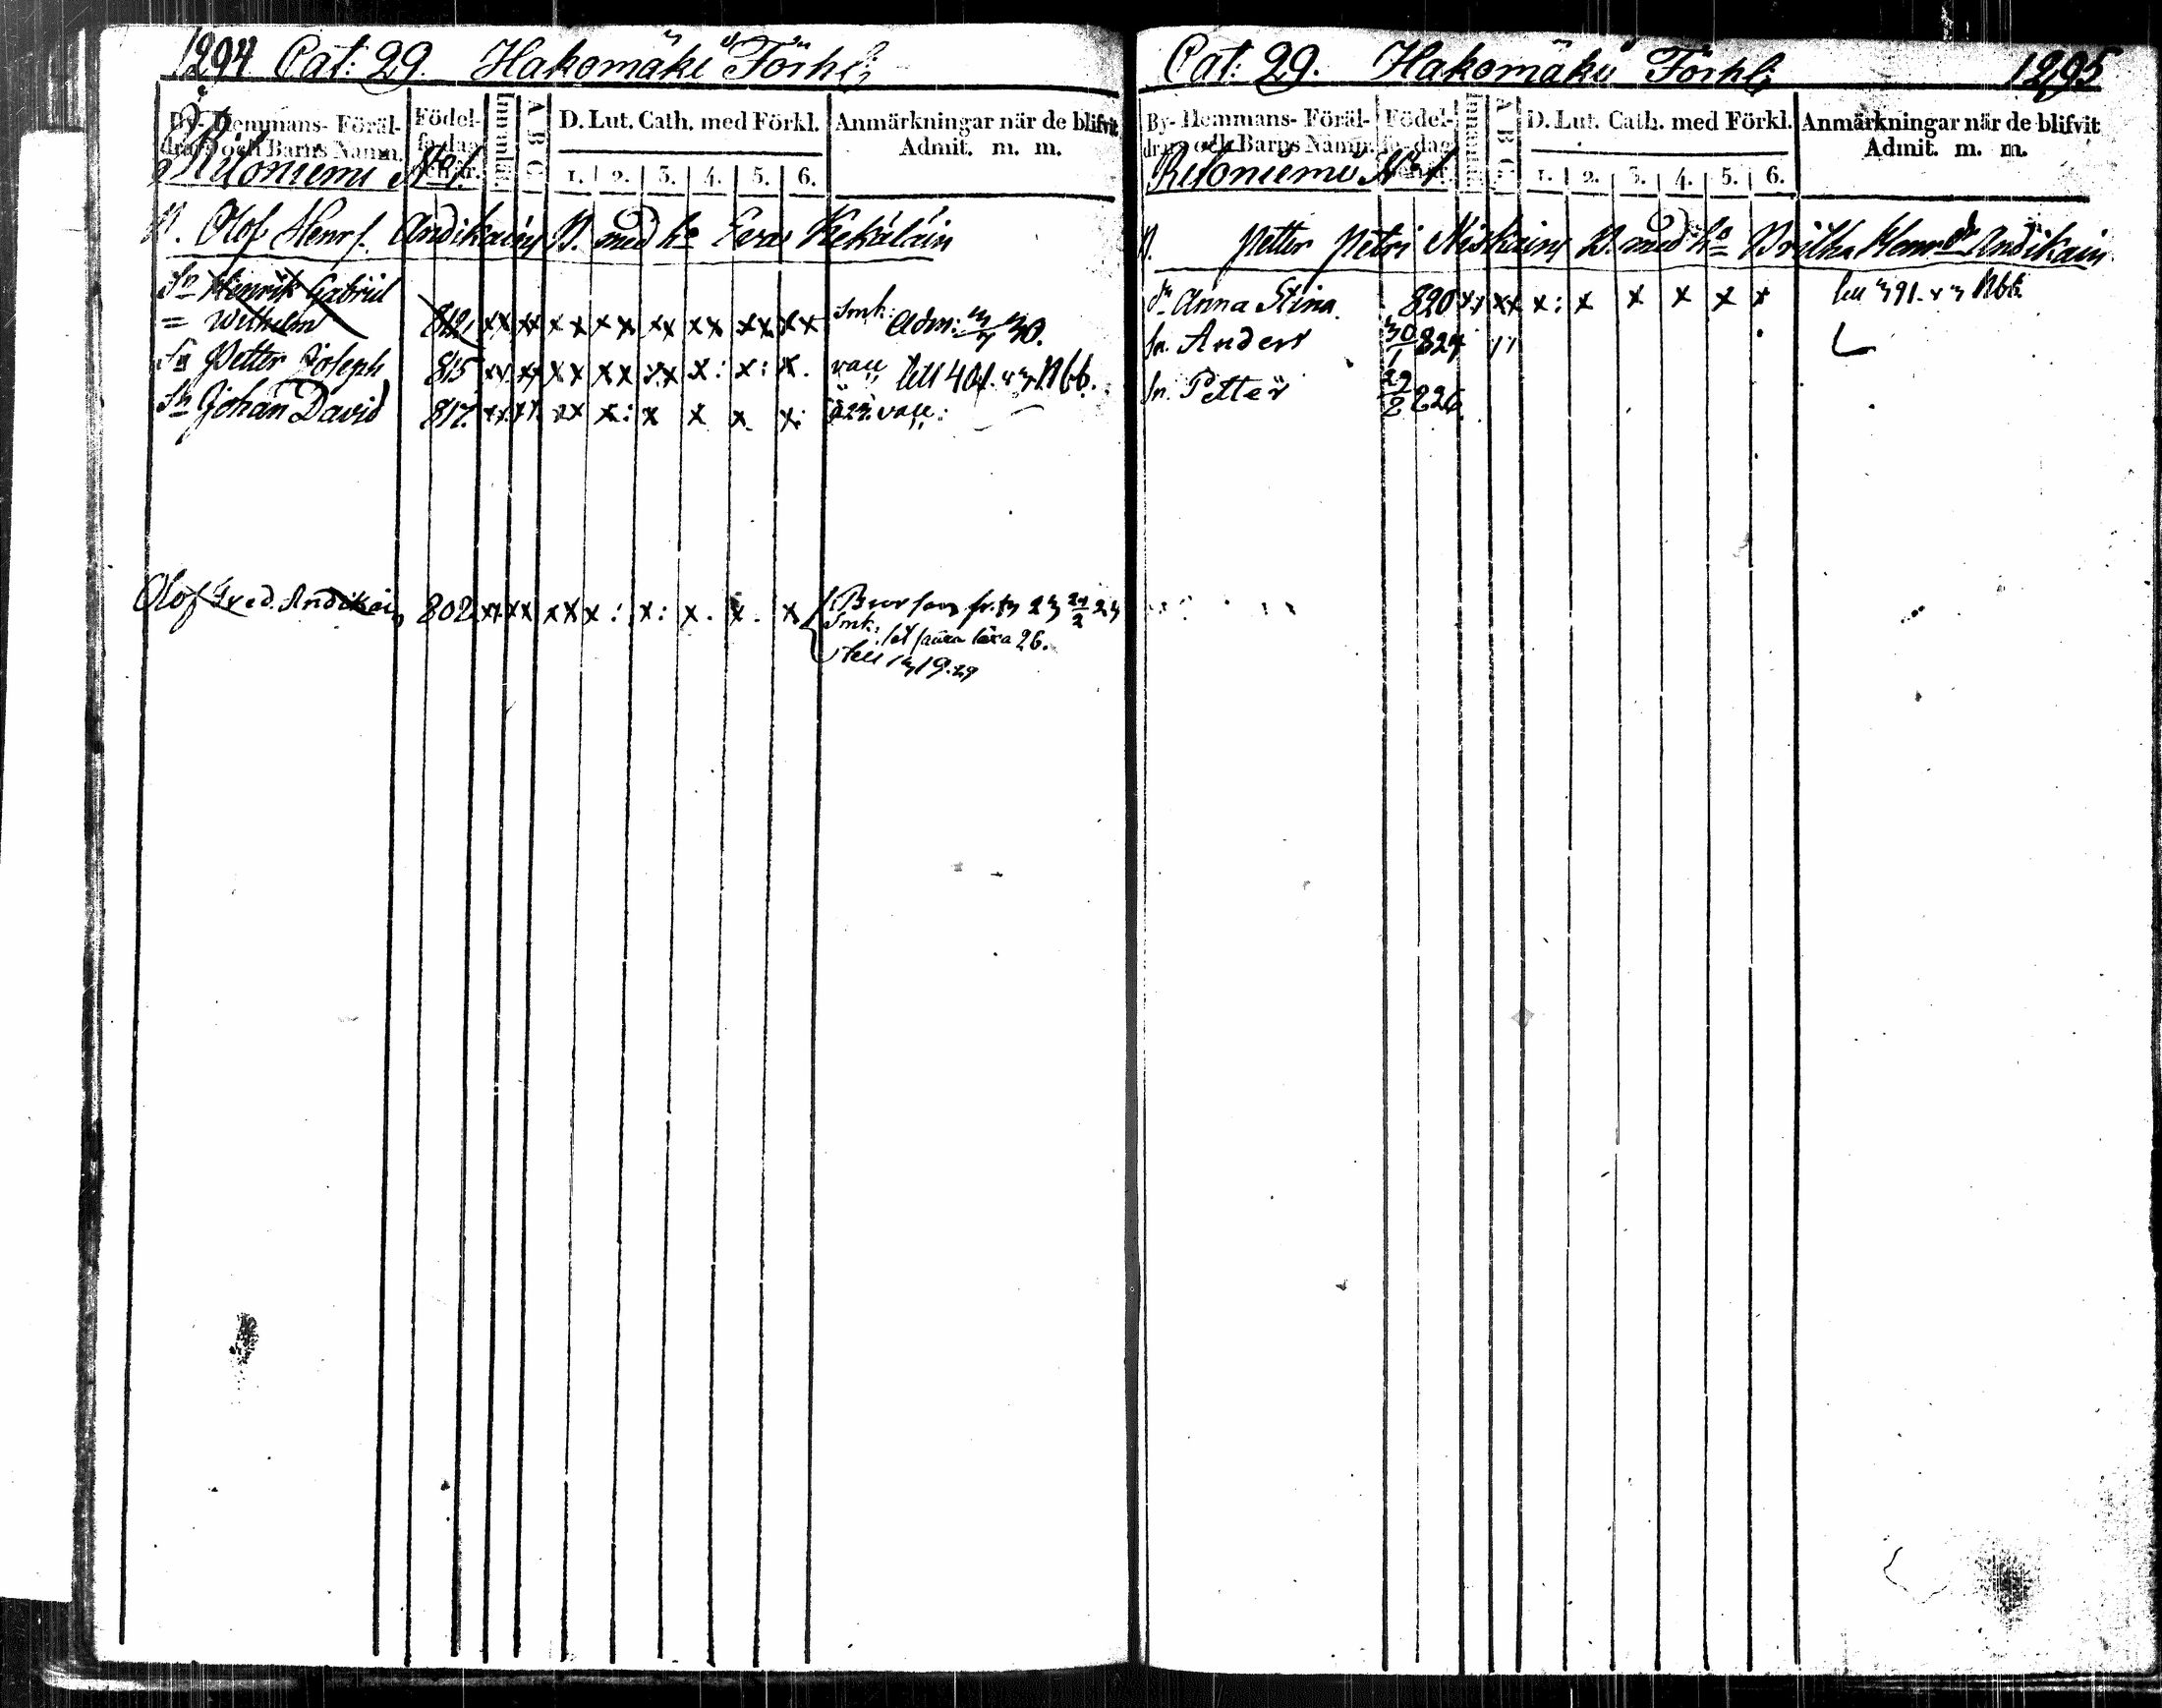 1294 Cat: 29. Hakomäki Förhl:
By- Hemmans- Föräl-
drars och Barns Namn.
Födel-
se-dag
och år.
Innanläs.
A B C
D. Lut. Cath. med Förkl.
1. 2. 3. 4. 5. 6.
Anmärkningar när de blifvit
Admit. m. m.
Ritoniemi No 1.
N. Olof Henr s. Andikain B. med h. Eva Kekäläin
Sn Henrik Gabriel
= Wilhelm 812. xx xx xx xx xx xx xx xx smk: adm: 30.
Sn Petter Joseph 815 xx xx xx xx x.x x: x: x.
Sn Johan David 817. xx. xx. xx x: x x x x:
Olof Fred. Andikain 802 xx xx xx x: x: x. x. x
Smk:
26.
1295
Cat: 29. Hakomäki Förhl:
By- Hemmans- Föräl-
drars och Barns Namn.
Födel-
se-dag
och år.
Innanläs.
A B C
D. Lut. Cath. med Förkl.
1. 2. 3. 4. 5. 6.
Anmärkningar när de blifvit
Admit. m. m.
Ritoniemi No 1.
N. Petter Petri Niskain B. med h. Britha Henr dr Andikain
dr Anna Stina 820 xx xx x: x x x x x
sn. Anders 30/1 824
sn. Petter 22/2 826.